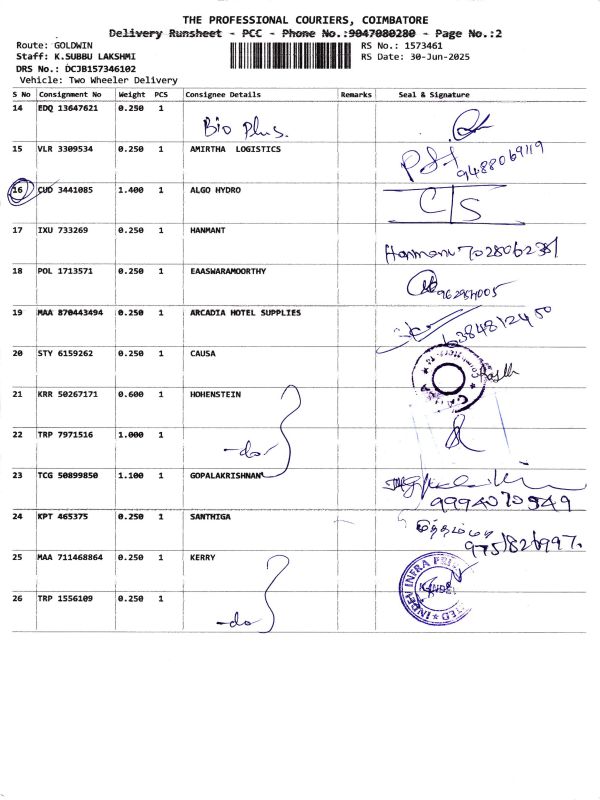 THE PROFESSIONAL COURIERS, COIMBATORE
Delivery Runsheet - PCC - Phone No.:9047080280 - Page No.:2
Route: GOLDWIN
RS No.: 1573461
Staff: K.SUBBU LAKSHMI
RS Date: 30-Jun-2025
DRS No.: DCJB157346102
Vehicle: Two Wheeler Delivery
S No Consignment No Weight PCS Consignee Details Remarks Seal & Signature
14 EDQ 13647621 0.250 1 Bio Plus.
15 VLR 3309534 0.250 1 AMIRTHA LOGISTICS 9488069119
16 CUD 3441085 1.400 1 ALGO HYDRO C/S
17 IXU 733269 0.250 1 HANMANT 7028062381
18 POL 1713571 0.250 1 EAASWARAMOORTHY
19 MAA 870443494 0.250 1 ARCADIA HOTEL SUPPLIES 6384812450
20 STY 6159262 0.250 1 CAUSA
21 KRR 50267171 0.600 1 HOHENSTEIN
22 TRP 7971516 1.000 1 -do-
23 TCG 50899850 1.100 1 GOPALAKRISHNAN 9994070949
24 KPT 465375 0.250 1 SANTHIGA
25 MAA 711468864 0.250 1 KERRY INDEV INFRA
26 TRP 1556109 0.250 1 -do-